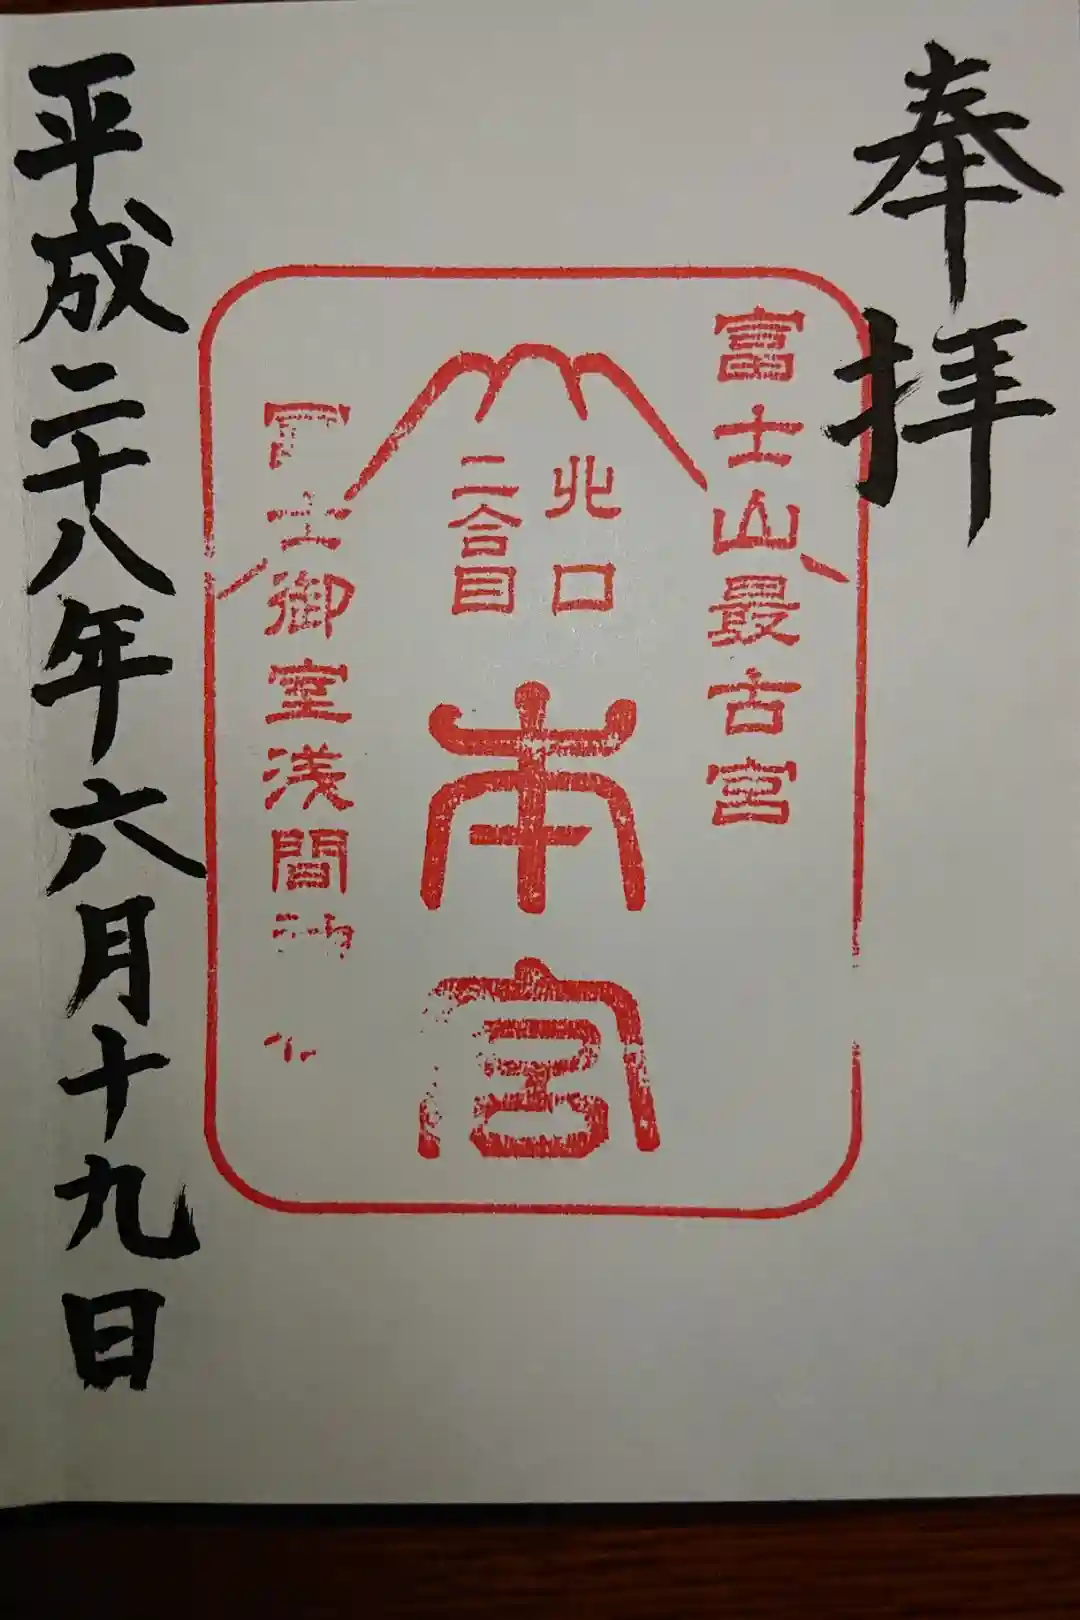 奉拝
富士山最古宮
北口
二合目
本宮
士御室浅間
平成二十八年六月十九日